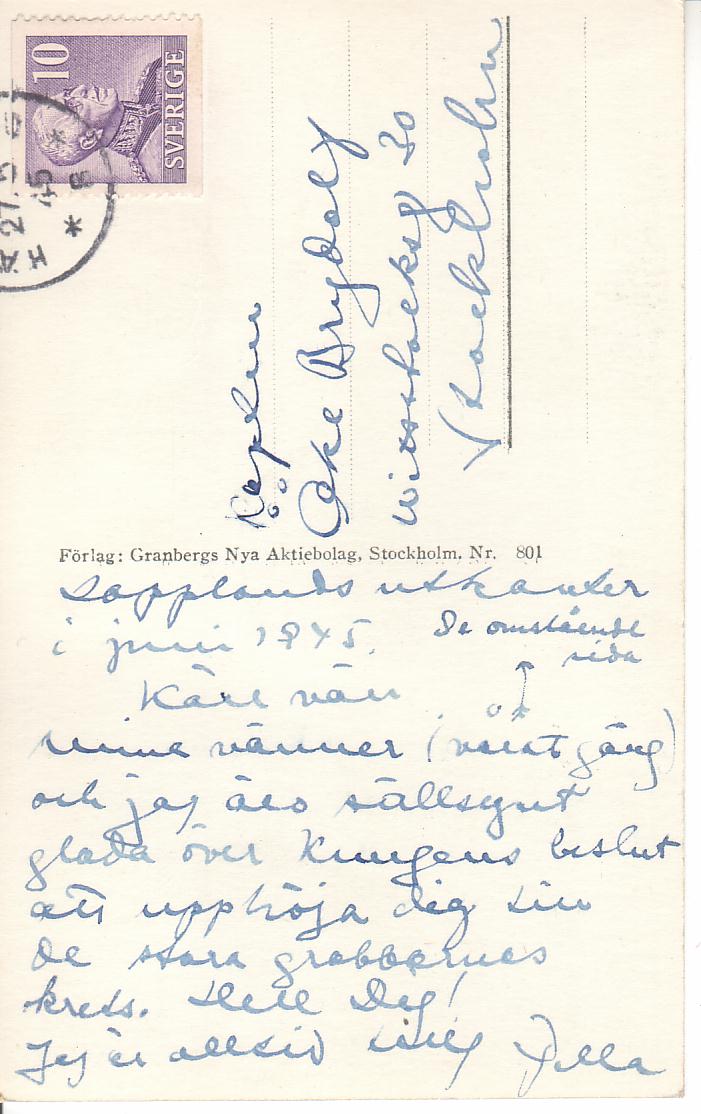 10
SVERIGE
27.
45
* B *
Kapten
Åke Brydolf
Wittstocksg 30
Stockholm
Förlag: Granbergs Nya Aktiebolag, Stockholm. Nr. 801
Lapplands utkanter
i juni 1945.
Se omstående
sida
Käre vän
mina vänner (vårat gäng)
och jag äro sällsynt
glada över Kungens beslut
att upphöja dig till
de stora grabbarnas
krets. Hell Dig!
Jag är alltid